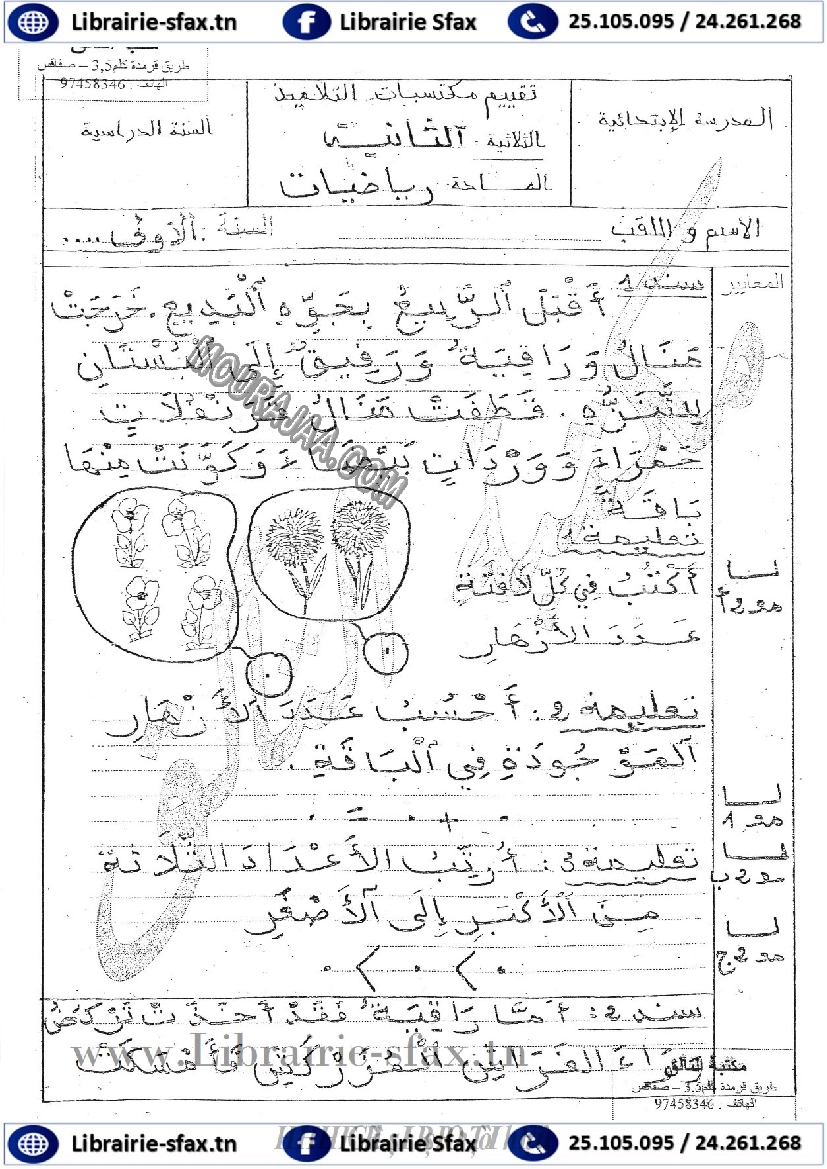 Librairie-sfax.tn Librairie Sfax 25.105.095 / 24.261.268
طريق قرمدة كلم 3,5 – صفاقس
الهاتف: 97458346
المدرسة الإبتدائية
تقييم مكتسبات التلاميذ
الثلاثية: الثانية
المادة: رياضيات
السنة الدراسية
الإسم و اللقب السنة: الأولى ....
المعايير
سند 1 أَقْبَلَ الرَّبِيعُ بِجَوِّهِ الْبَدِيعِ. خَرَجَتْ
مَنَالُ وَ رَاقِيَةُ وَ رَفِيقُ إِلَى الْبُسْتَانِ
لِلتَّنَزُّهِ. قَطَفَتْ مَنَالُ قَرَنْفُلَاتٍ
حَمْرَاءَ وَ وَرْدَاتٍ بَيْضَاءَ وَ كَوَّنَتْ مِنْهَا
بَاقَةً
تعليمة 1
أَكْتُبُ فِي كُلِّ لَافِتَةٍ
عَدَدَ الأَزْهَارِ
مع 2 أ
تعليمة 2: أَحْسُبُ عَدَدَ الأَزْهَارِ
الْمَوْجُودَةِ فِي الْبَاقَةِ.
. + . = .
مع 1
تعليمة 3: أُرَتِّبُ الأَعْدَادَ الثَّلَاثَةَ
مع 2 ب
مِنَ الْأَكْبَرِ إِلَى الْأَصْغَرِ
مع 2 ج
. > . > .
سند 2: أَمَّا رَاقِيَةُ فَقَدْ أَخَذَتْ تَرْكُضُ
وَرَاءَ الفَرَاشِ الْمُزَرْكَشِ فَأَمْسَكَتْ
MOURAJAA.COM
www.Librairie-sfax.tn
طريق قرمدة كلم 3,5 – صفاقس
الهاتف: 97458346
Librairie-sfax.tn Librairie Sfax 25.105.095 / 24.261.268